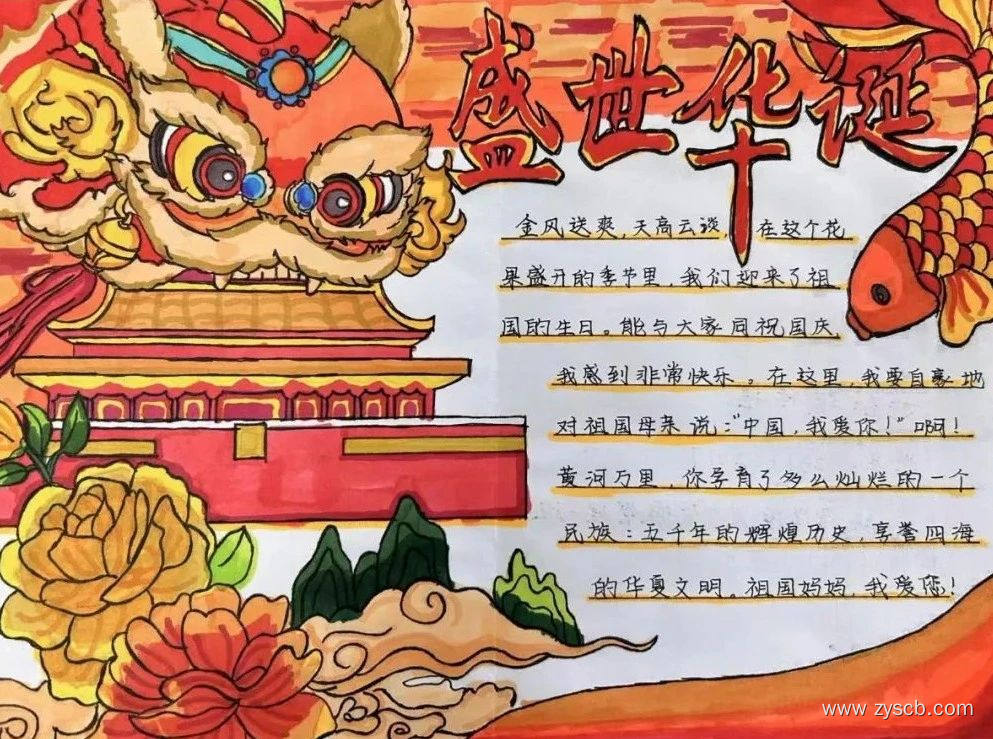 盛世华诞
金风送爽,天高云淡,在这个花
果盛开的季节里,我们迎来了祖
国的生日。能与大家同祝国庆,
我感到非常快乐。在这里,我要自豪地
对祖国母亲说:“中国,我爱你!”啊!
黄河万里,你孕育了多么灿烂的一个
民族:五千年的辉煌历史,享誉四海
的华夏文明。祖国妈妈,我爱您!
www.zyscb.com